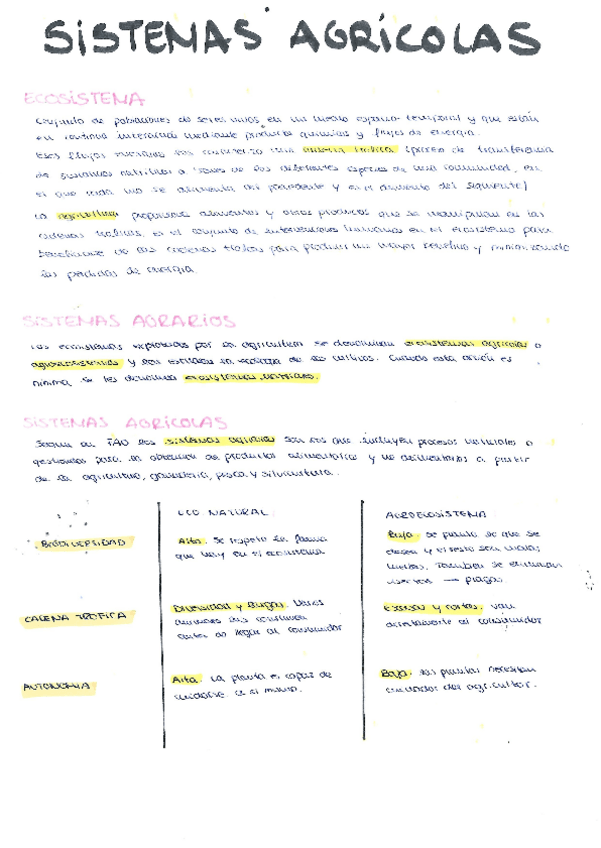 SISTEMAS AGRÍCOLAS
ECOSISTEMA
Conjunto de poblaciones de seres vivos en un medio espacio-temporal y que están
en continua interacción mediante productos químicos y flujos de energía.
Esos flujos energía una cadena trófica (proceso de transferencia
de sustancias nutritivas a través de las diferentes especies de una comunidad, en
el que cada uno se alimenta del precedente y es el alimento del siguiente)
La agricultura proporciona alimentos y otros productos que se manipulan en las
cadenas tróficas. Es el conjunto de intervenciones humanas en el ecosistema para
beneficiarse de las cadenas tróficas para producir un mayor y minimizando
las pérdidas de energía.
SISTEMAS AGRARIOS
Los ecosistemas explotados por la agricultura se denominan ecosistemas agrícolas o
agroecosistemas y son de los cultivos. Cuando esta acción es
mínima se les denomina ecosistemas naturales.
SISTEMAS AGRÍCOLAS
Según la FAO los sistemas agrícolas son los que incluyen procesos naturales o
gestionados para la obtención de productos alimentarios y no alimentarios a partir
de la agricultura, ganadería, pesca y silvicultura.
ECO NATURAL
AGROECOSISTEMA
BIODIVERSIDAD
Alta. Se respeta la fauna
que hay en el ecosistema
Baja. Se planta lo que se
desea y el resto son malas
hierbas. También se eliminan
insectos → plagas.
CADENA TRÓFICA
Diversidad y largas. Varios
animales las
antes de llegar al consumidor
Escasas y cortas. van
directamente al consumidor
AUTONOMÍA
Alta. La planta es capaz de
cuidarse a sí misma.
Baja. Las plantas necesitan
cuidados del agricultor.